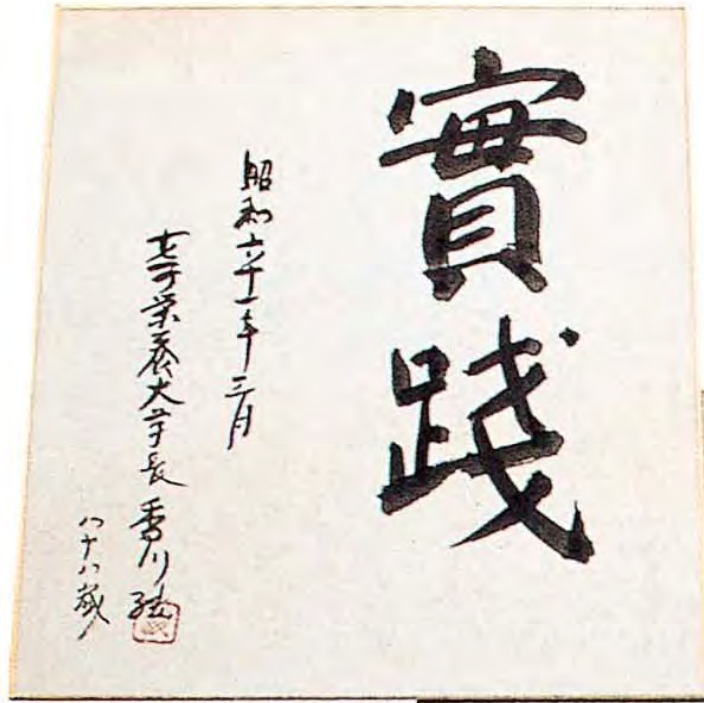 實踐
昭和六十一年三月
女子栄養大学長 香川綾
八十八歳